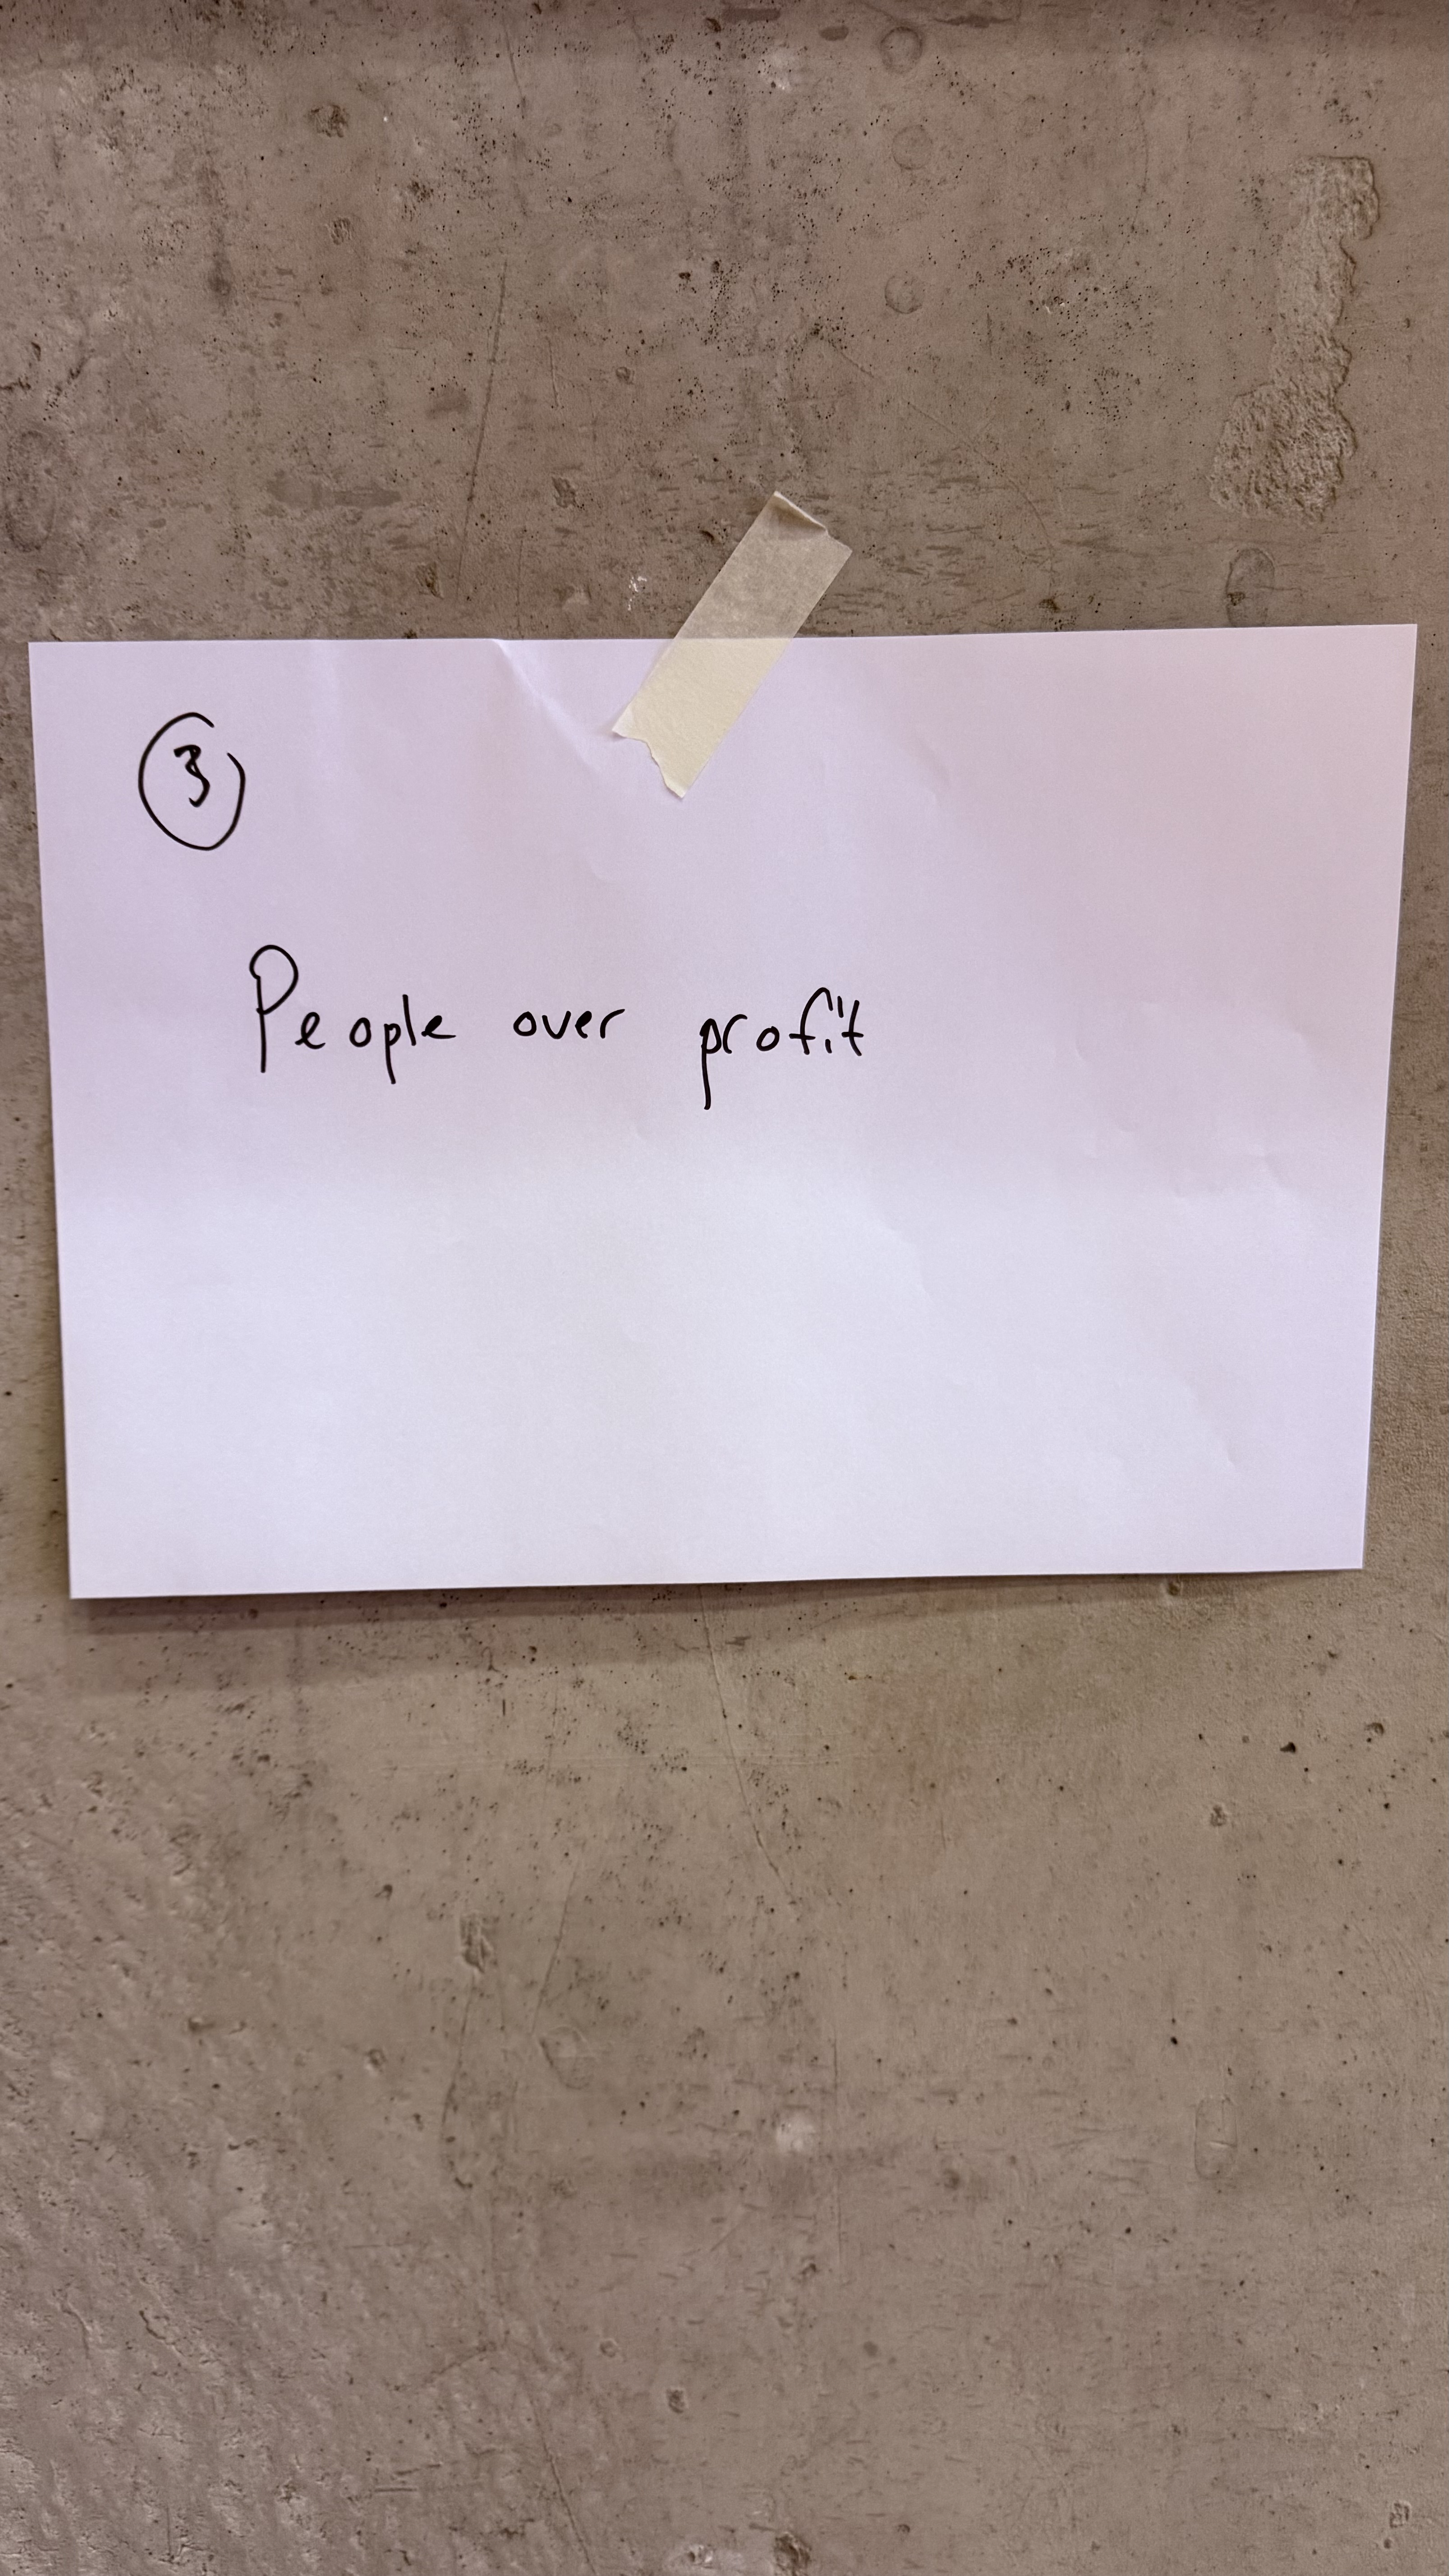 3
People over profit